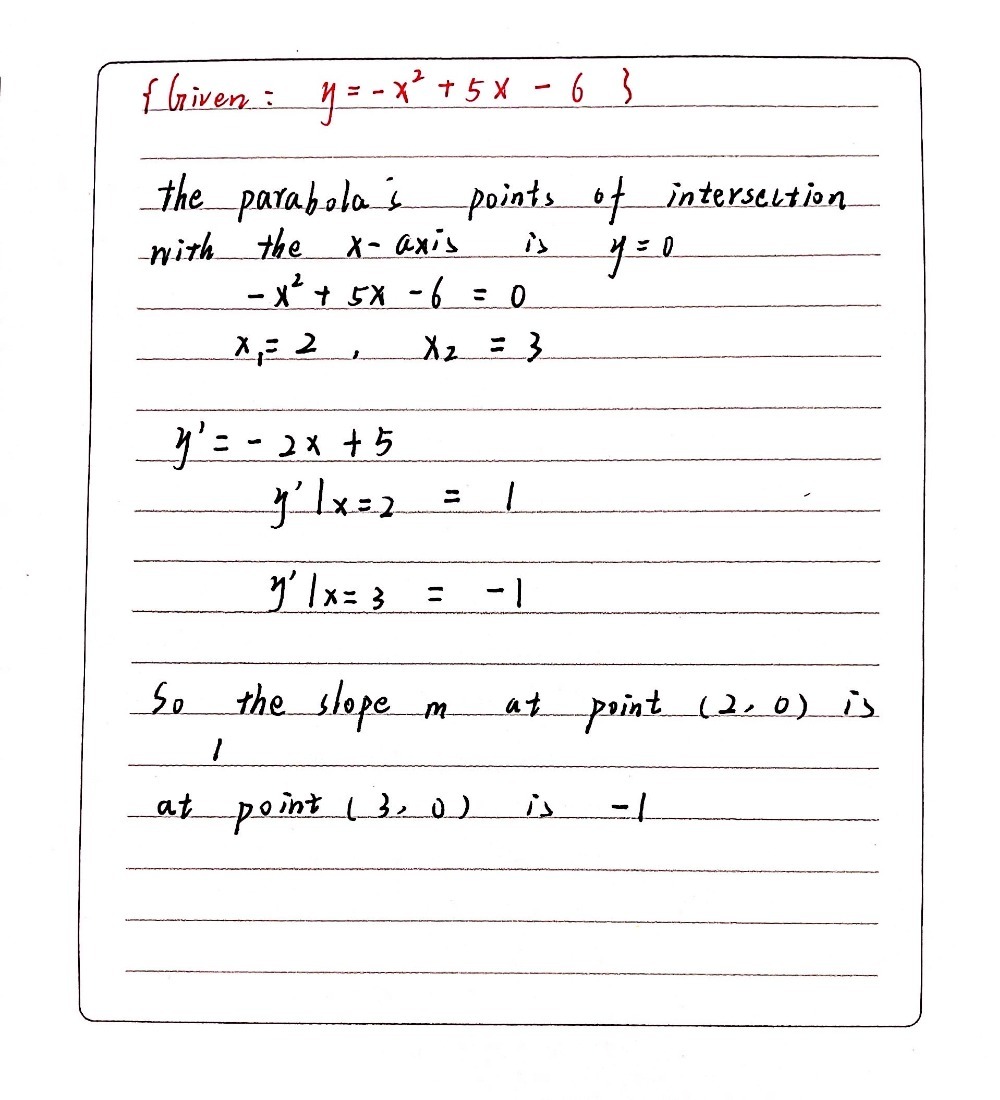 {Given: y = -x² + 5x - 6 }
the parabola's points of intersection
with the x-axis is y = 0
-x² + 5x - 6 = 0
x₁ = 2 , x₂ = 3
y' = -2x + 5
y'|x=2 = 1
y'|x=3 = -1
So the slope m at point (2, 0) is
1
at point (3, 0) is -1